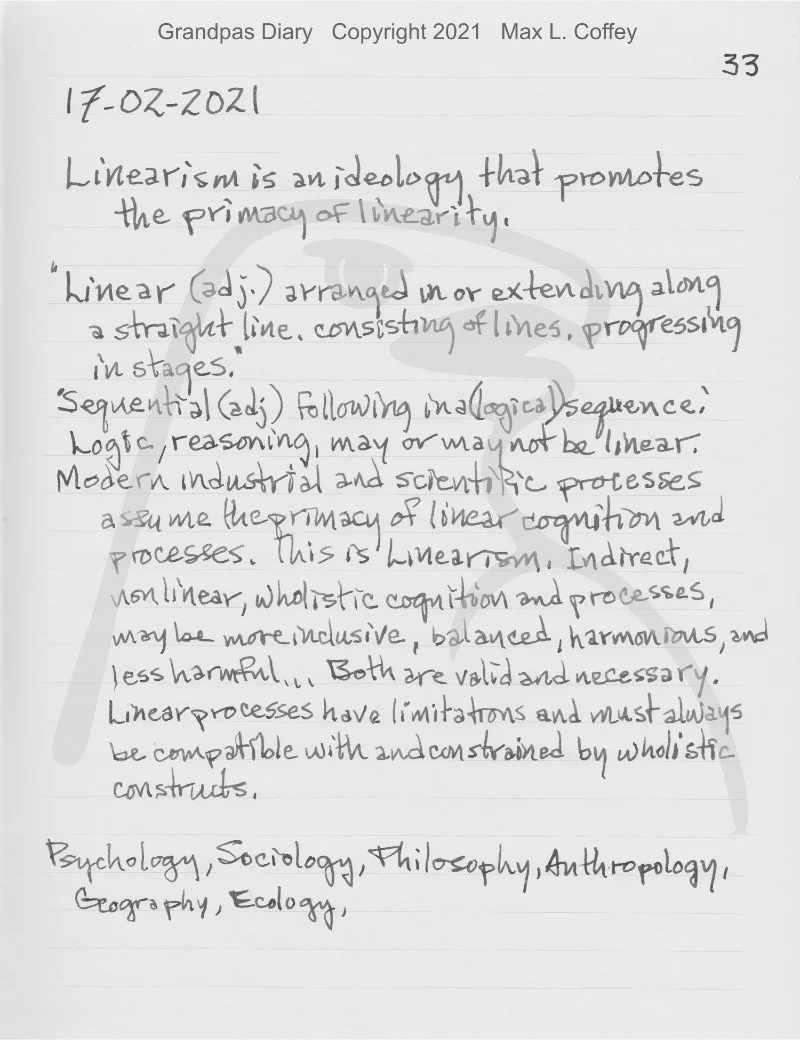 Grandpas Diary Copyright 2021 Max L. Coffey
33
17-02-2021
Linearism is an ideology that promotes
the primacy of linearity.
"Linear (adj.) arranged in or extending along
a straight line. consisting of lines. progressing
in stages."
"Sequential (adj) Following in a (logical) sequence."
Logic, reasoning, may or may not be linear.
Modern industrial and scientific processes
assume the primacy of linear cognition and
processes. This is Linearism. Indirect,
nonlinear, wholistic cognition and processes,
may be more inclusive, balanced, harmonious, and
less harmful... Both are valid and necessary.
Linear processes have limitations and must always
be compatible with and constrained by wholistic
constructs.
Psychology, Sociology, Philosophy, Anthropology,
Geography, Ecology,